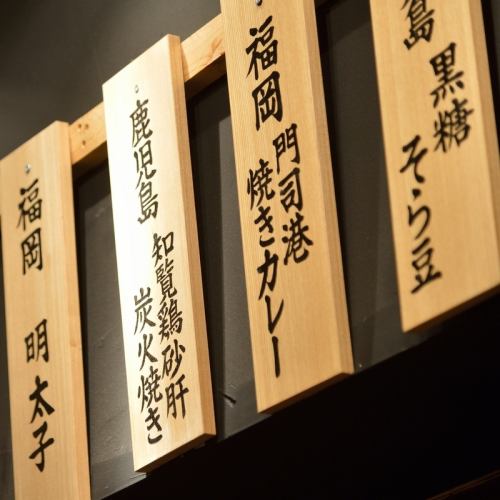 島 黒糖
そら豆
福岡 門司港
焼きカレー
鹿児島 知覧鶏砂肝
炭火焼き
福岡 明太子